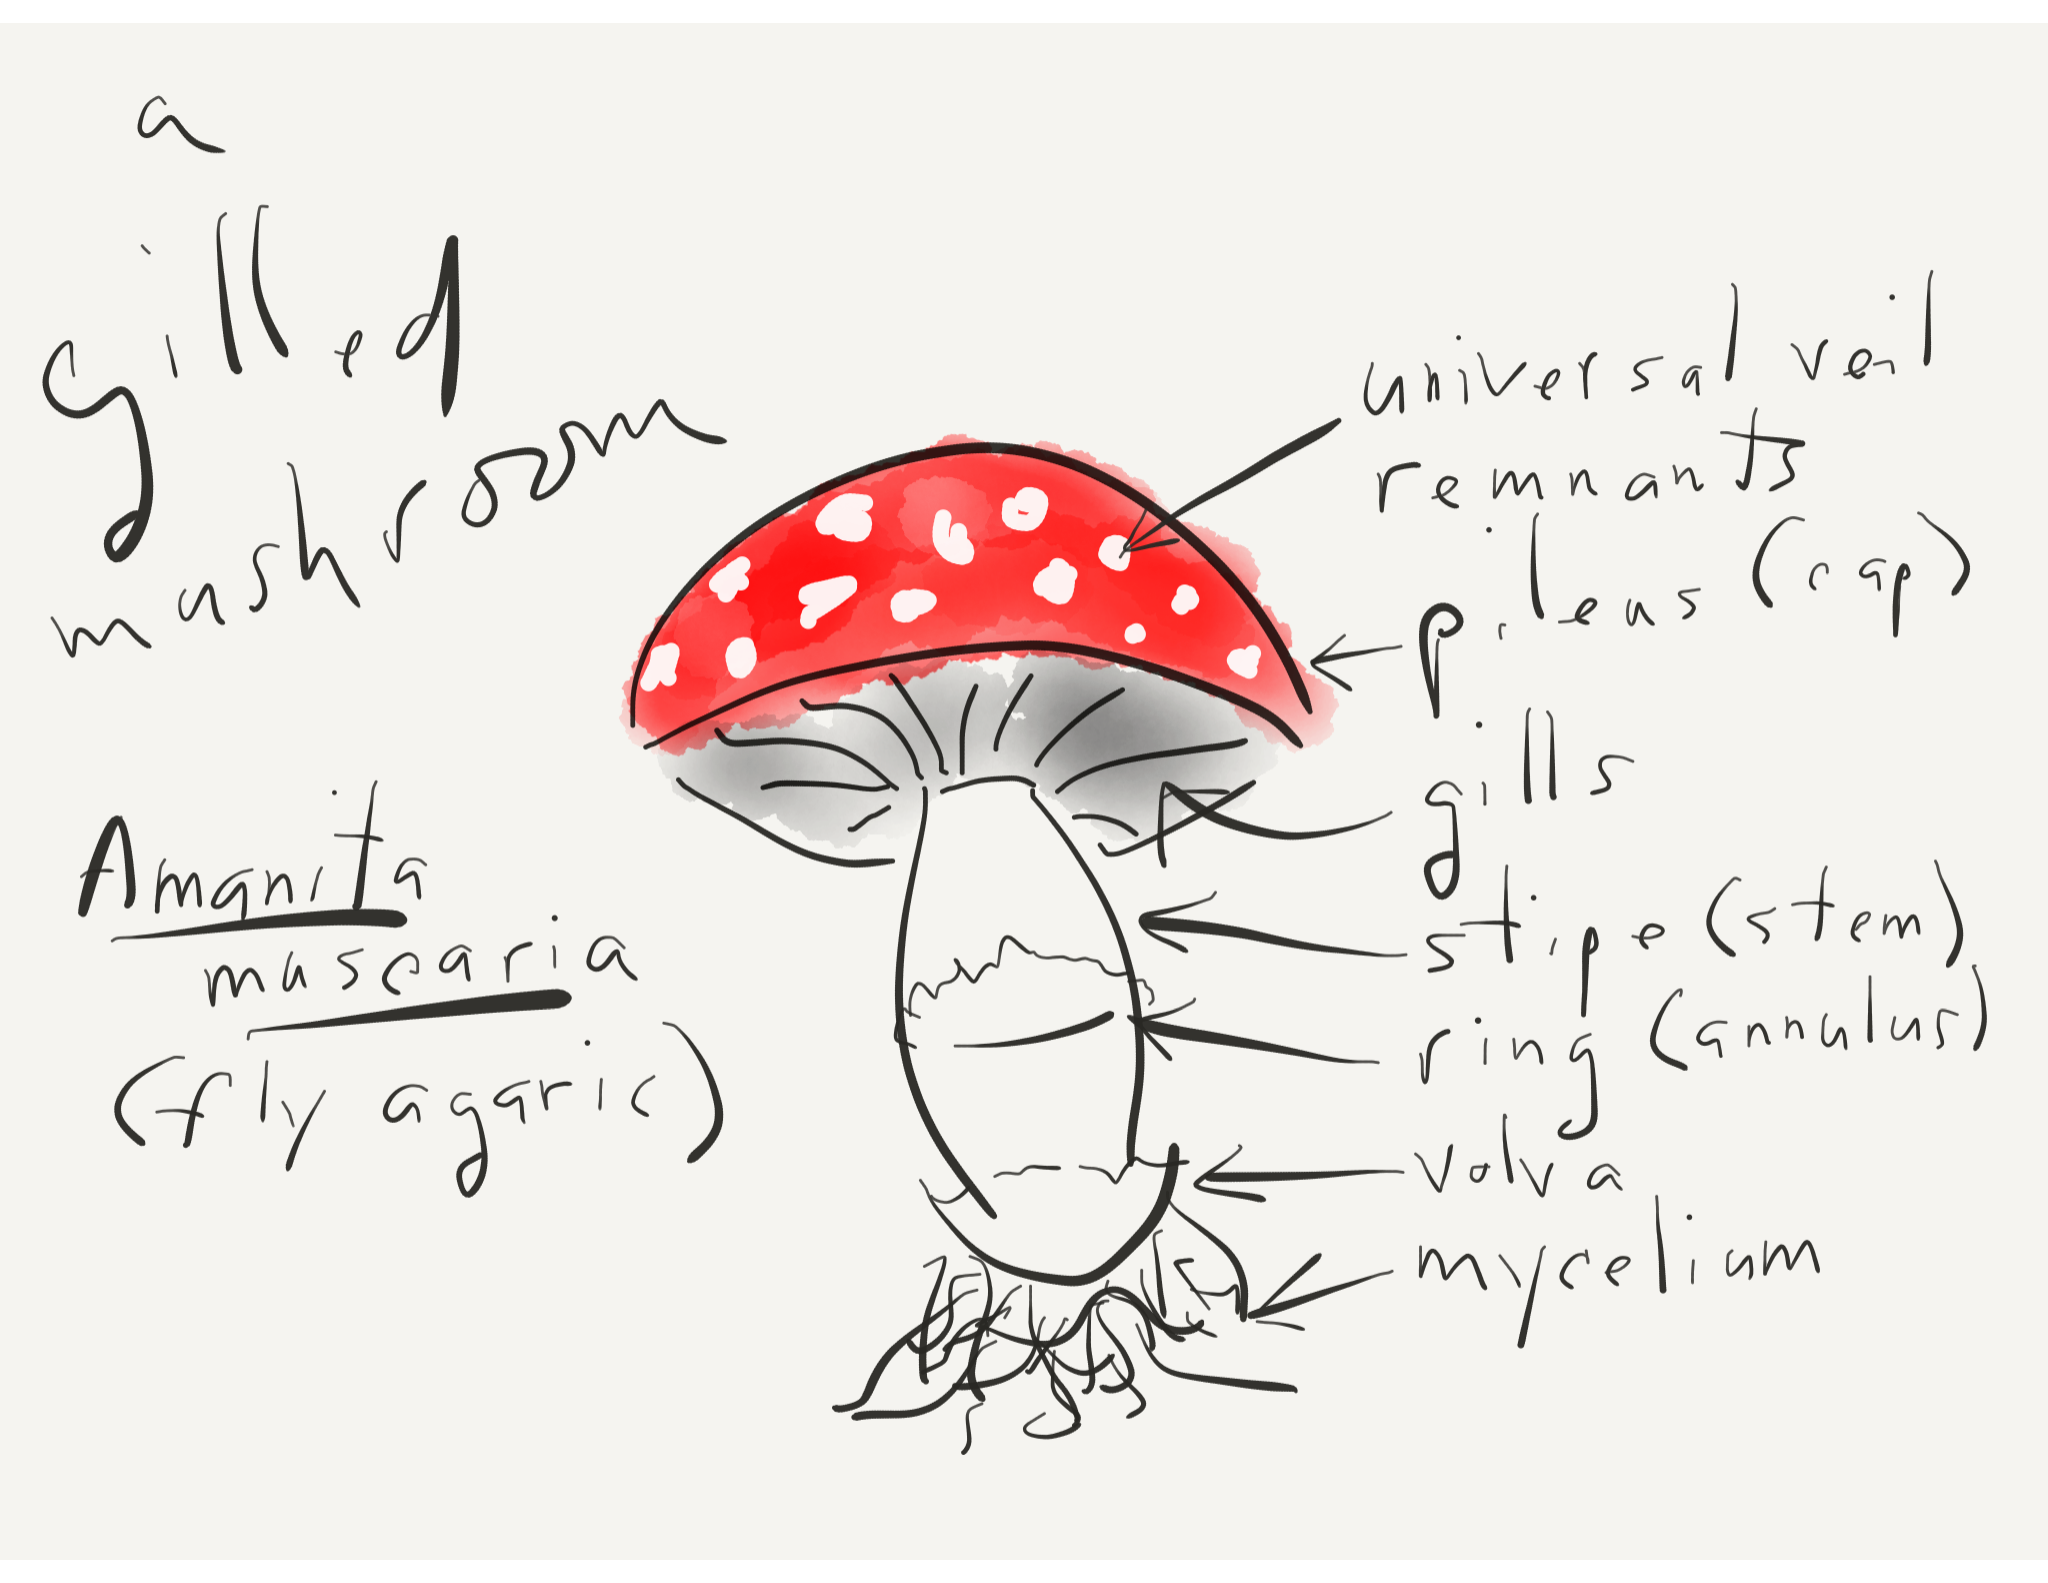 a
gilled
mushroom
Amanita
muscaria
(fly agaric)
universal veil
remnants
pileus (cap)
gills
stipe (stem)
ring (annulus)
volva
mycelium